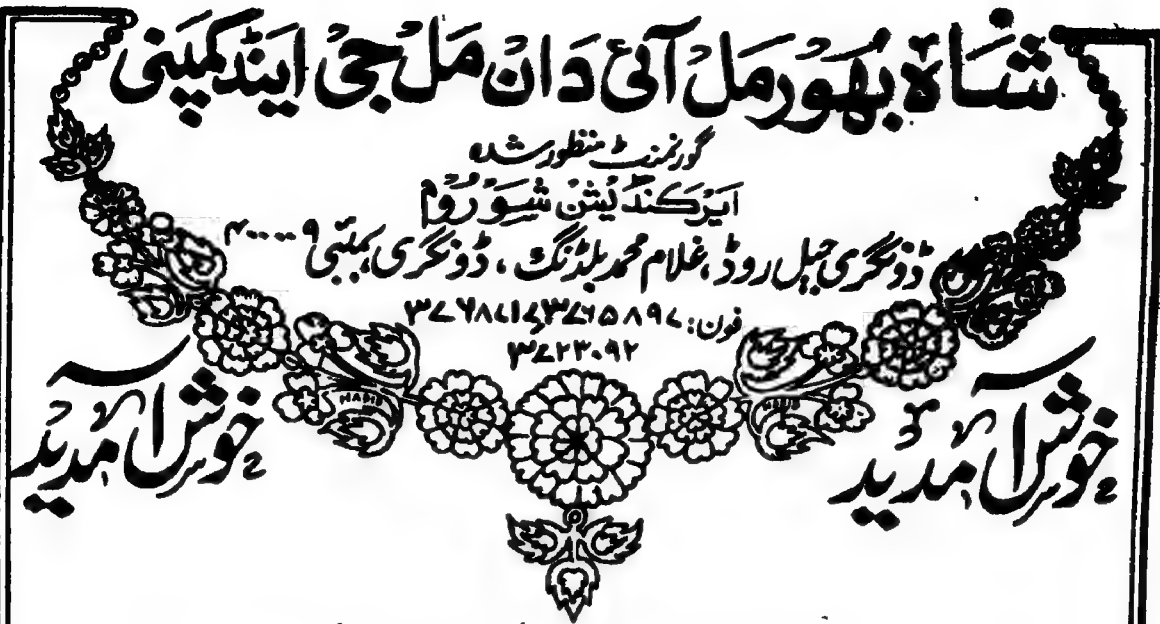 شاہ بھورمل آئی دان مل جی اینڈ کمپنی
گورنمنٹ منظور شدہ
ایرکنڈیشن شوروم
ڈونگری جیل روڈ، غلام محمد بلڈنگ، ڈونگری بمبئی ۴۰۰۰۰۹
فون: ۳۷۶۵۸۹۷، ۳۷۶۸۷۱۷
۳۷۲۳۰۹۲
خوش آمدید
خوش آمدید
HABIB
HABIB